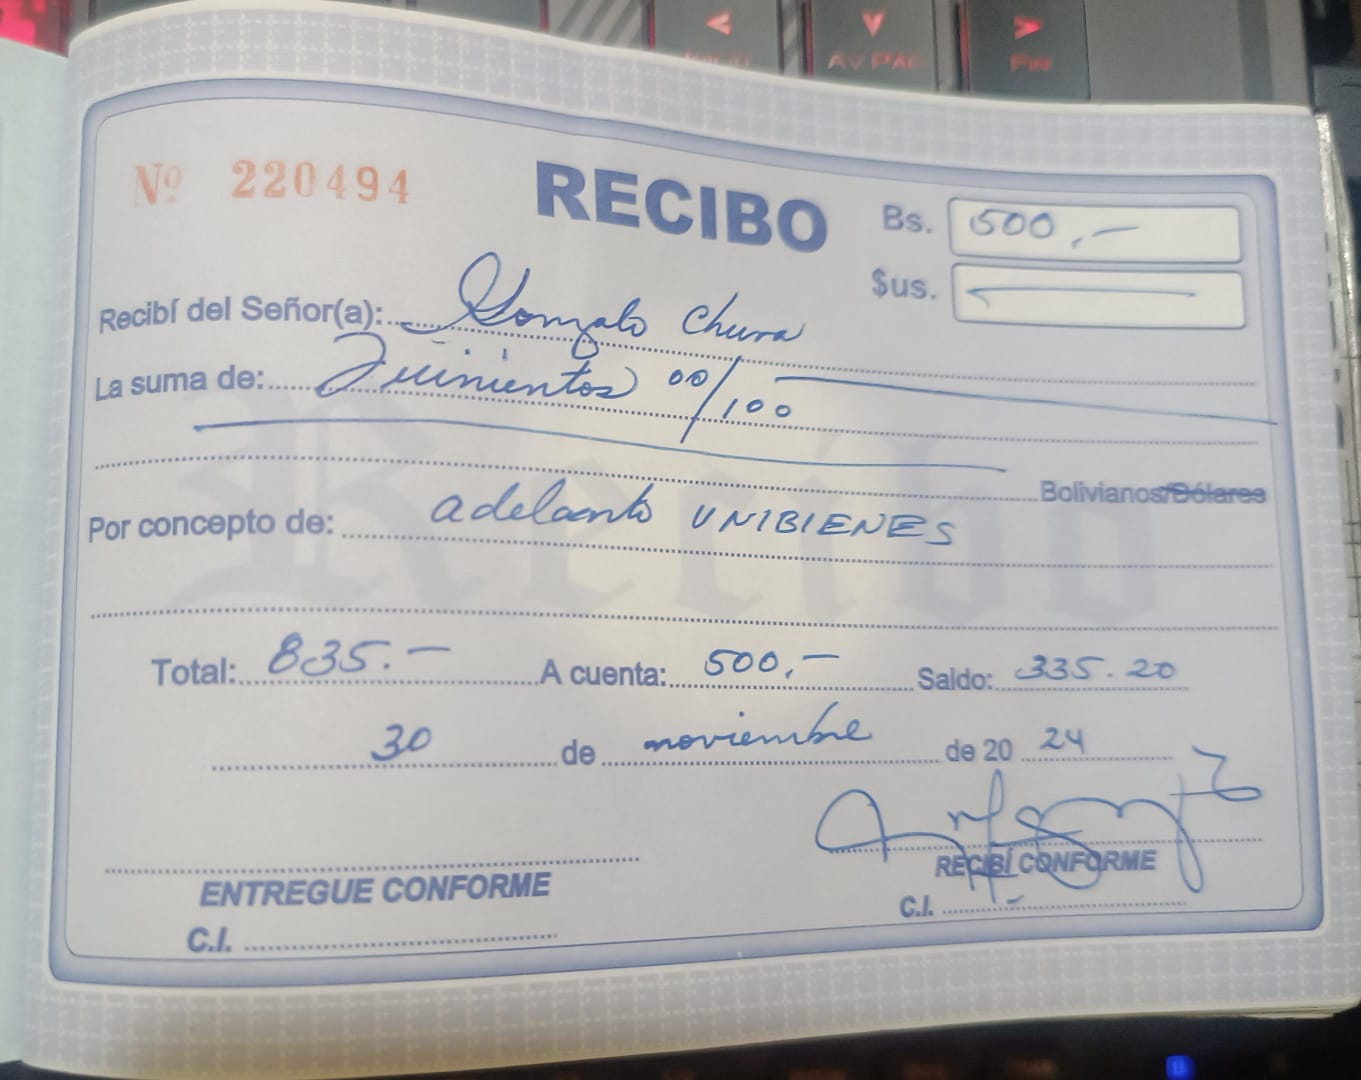 Nº 220494
RECIBO
Bs. 500,-
$us.
Recibí del Señor(a): Gonzalo Chura
La suma de: Quinientos 00/100
Bolivianos/Dólares
Por concepto de: adelanto UNIBIENES
Total: 835.- A cuenta: 500,- Saldo: 335.20
30 de noviembre de 20 24
ENTREGUE CONFORME
C.I.
RECIBÍ CONFORME
C.I.
AV PAG
FIN